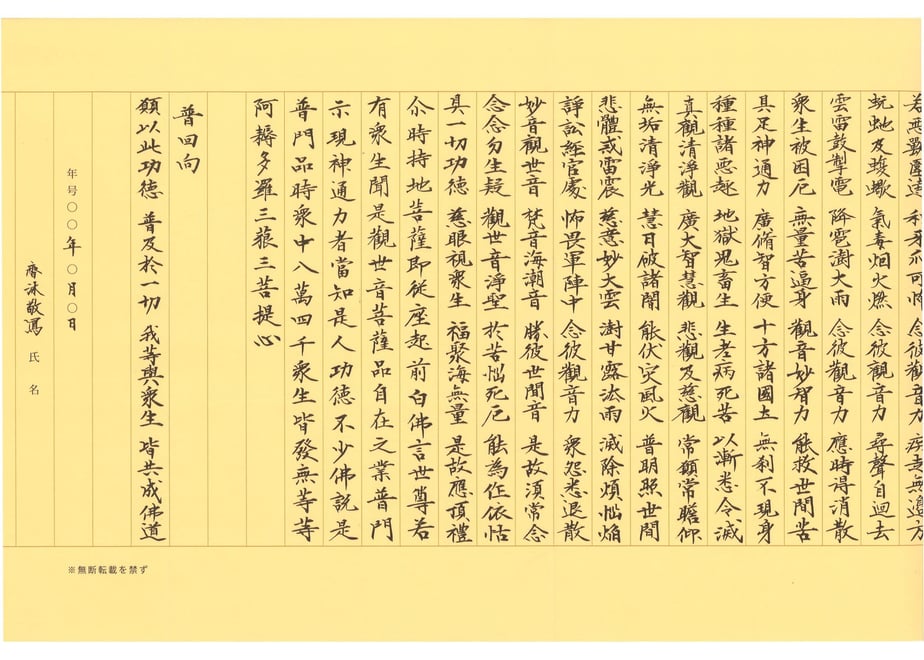 若惡獸圍遶 利牙爪可怖 念彼觀音力 疾走無邊方
蚖虵及蝮蠍 氣毒烟火燃 念彼觀音力 尋聲自迴去
雲雷鼓掣電 降雹澍大雨 念彼觀音力 應時得消散
衆生被困厄 無量苦逼身 觀音妙智力 能救世間苦
具足神通力 廣脩智方便 十方諸國土 無刹不現身
種種諸惡趣 地獄鬼畜生 生老病死苦 以漸悉令滅
真觀清淨觀 廣大智慧觀 悲觀及慈觀 常願常瞻仰
無垢清淨光 慧日破諸闇 能伏災風火 普明照世間
悲體戒雷震 慈意妙大雲 澍甘露法雨 滅除煩惱焔
諍訟經官處 怖畏軍陣中 念彼觀音力 衆怨悉退散
妙音觀世音 梵音海潮音 勝彼世間音 是故須常念
念念勿生疑 觀世音淨聖 於苦惱死厄 能為作依怙
具一切功德 慈眼視衆生 福聚海無量 是故應頂禮
尒時持地菩薩即從座起前白佛言世尊若
有衆生聞是觀世音菩薩品自在之業普門
示現神通力者當知是人功德不少佛說是
普門品時衆中八萬四千衆生皆發無等等
阿耨多羅三藐三菩提心
普回向
願以此功德 普及於一切 我等與衆生 皆共成佛道
年号〇〇年〇月〇日
齋沐敬寫 氏名
※無断転載を禁ず